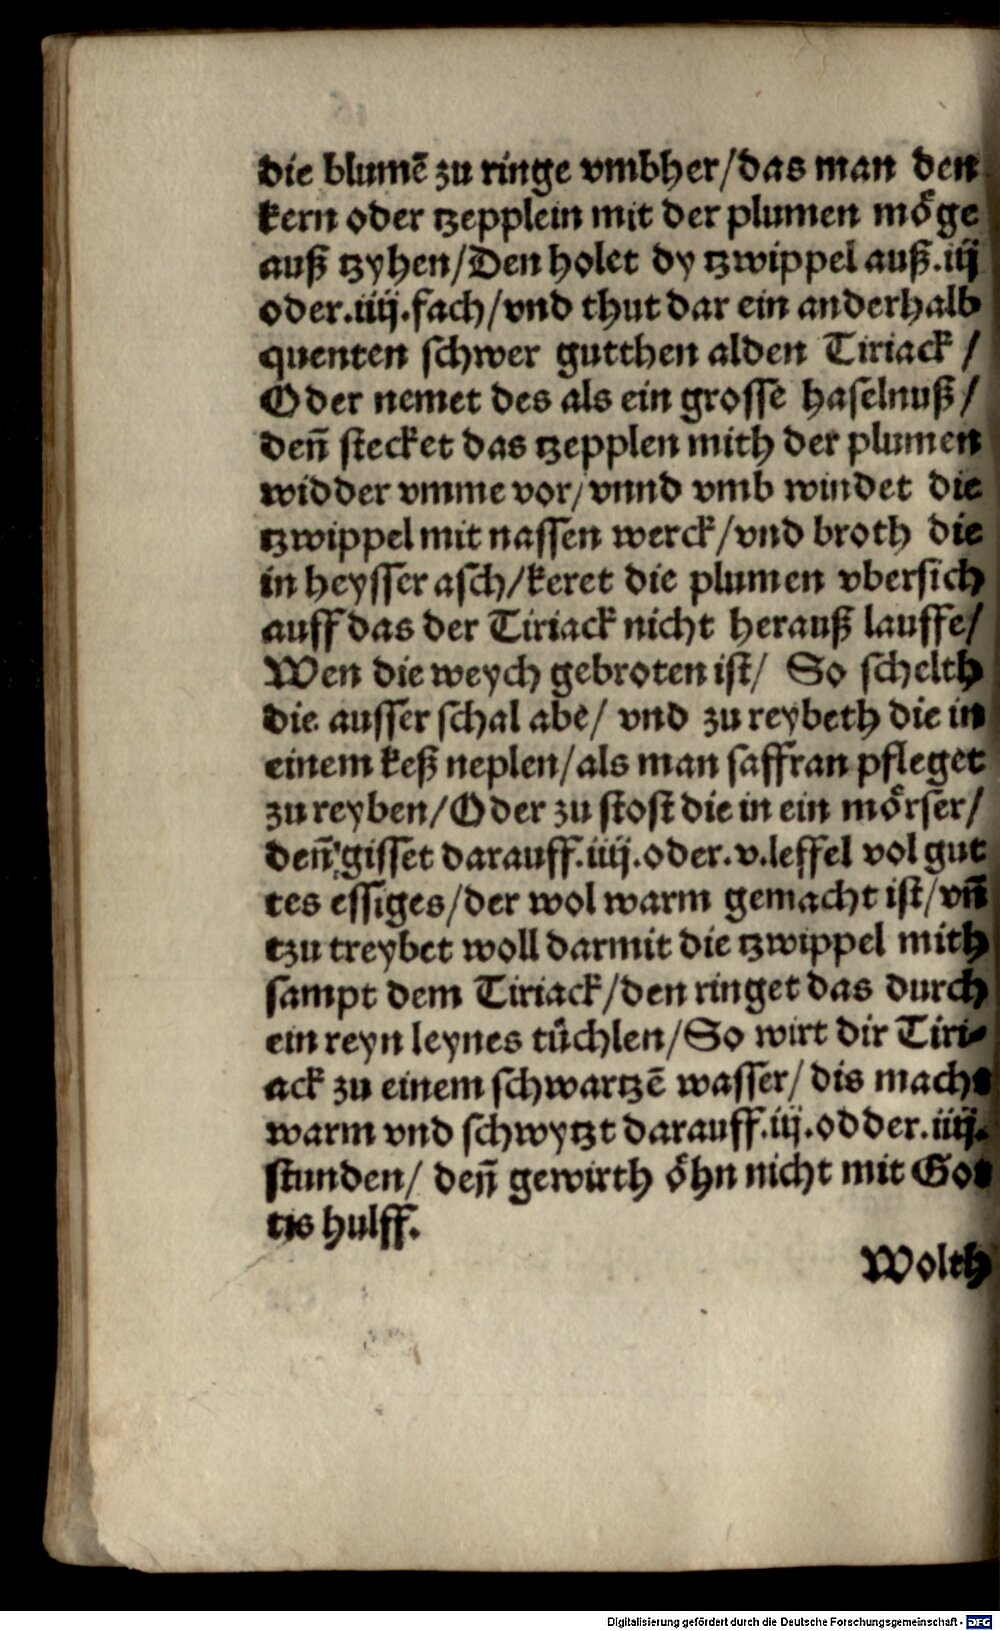 die blumē zu ringe vmbher/das man den
kern oder tzepplein mit der plumen mőge
auß tzyhen/Den holet dy tzwippel auß.iij
oder.iiij.fach/vnd thut dar ein anderhalb
quenten schwer gutthen alden Tiriack /
Oder nemet des als ein grosse haselnuß/
deñ stecket das tzepplen mith der plumen
widder vmme vor/vnnd vmb windet die
tzwippel mit nassen werck/vnd broth die
in heysser asch/keret die plumen vbersich
auff das der Tiriack nicht herauß lauffe/
Wen die weych gebroten ist/ So schelth
die ausser schal abe/ vnd zu reybeth die in
einem keß neplen/als man saffran pfleget
zu reyben/Oder zu stost die in ein mőrser/
deñ gisset darauff.iiij.oder.v.leffel vol gut
tes essiges/der wol warm gemacht ist/vñ
tzu treybet woll darmit die tzwippel mith
sampt dem Tiriack/den ringet das durch
ein reyn leynes tůchlen/So wirt dir Tiri-
ack zu einem schwartzē wasser/dis macht
warm vnd schwytzt darauff.iij.odder.iiij.
stunden/ deñ gewirth őhn nicht mit Got
tis hulff.
Wolth
Digitalisierung gefördert durch die Deutsche Forschungsgemeinschaft - DFG